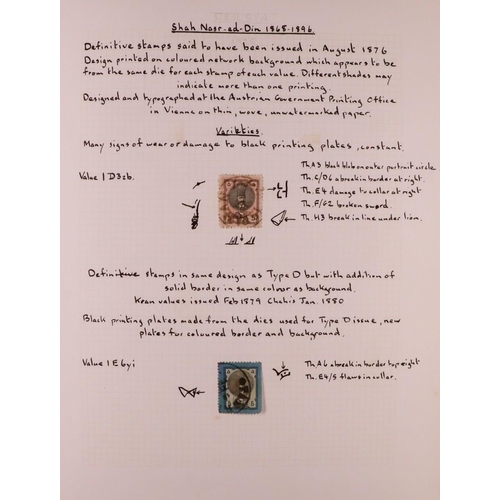 Shah Nasr-ed-Din 1868-1896.
Definitive stamps said to have been issued in August 1876
Design printed on coloured network background which appears to be
from the same die for each stamp of each value. Different shades may
indicate more than one printing.
Designed and typographed at the Austrian Government Printing Office
in Vienna on thin, wove, unwatermarked paper.
Varieties.
Many signs of wear or damage to black printing plates, constant.
Value 1 D3zb.
Th.A3 black blob on outer portrait circle
Th.C/D6 a break in border at right.
Th.E4 damage to collar at right
Th.F/G2 broken sword.
Th.H3 break in line under lion.
Definitive stamps in same design as Type D but with addition of
solid border in same colour as background.
Kran values issued Feb 1879 Chahis Jan. 1880
Black printing plates made from the dies used for Type D issue, new
plates for coloured border and background.
Value 1 E6yi
Th.A6 a break in border top right
Th.E4/5 flaws in collar.